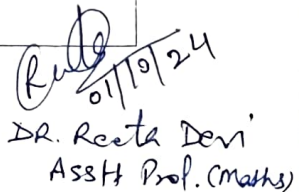 Reeta
01/10/24
DR. Reeta Devi
Asstt Prof. (Maths)